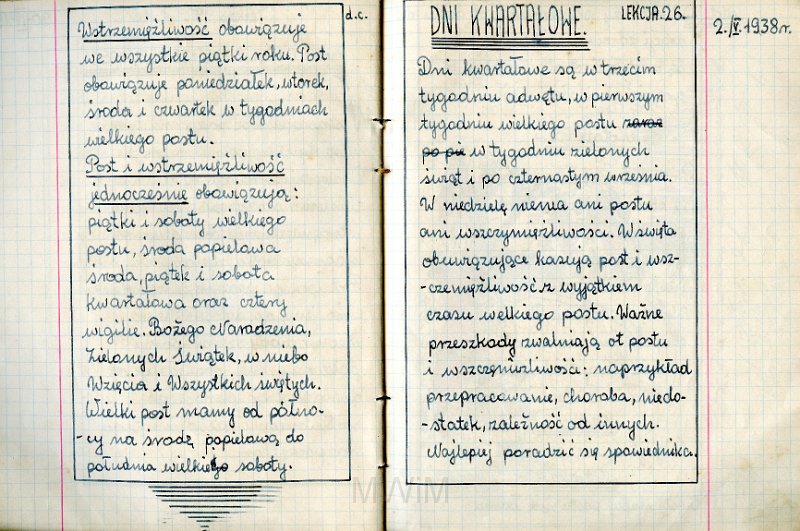 d.c.
Wstrzemięźliwość obowiązuje
we wszystkie piątki roku. Post
obowiązuje poniedziałek, wtorek,
środa i czwartek w tygodniach
wielkiego postu.
Post i wstrzemięźliwość
jednocześnie obowiązują:
piątki i soboty wielkiego
postu, środa popielawa
środa, piątek i sobota
kwartałowa oraz cztery
wigilie. Bożego Naradzenia,
Zielonych Świątek, w niebo
Wzięcia i Wszystkich świętych.
Wielki post mamy od półno-
-cy na środę popielawą do
południa wielkiej soboty.
DNI KWARTAŁOWE. LEKCJA 26.
2./V. 1938 r.
Dni kwartałowe są w trzecim
tygodniu adwętu, w pierwszym
tygodniu wielkiego postu zaraz
po pie w tygodniu zielonych
świąt i po czternastym września.
W niedzielę niema ani postu
ani wszczymięźliwości. W święta
obowiązujące kasują post i wsz-
-czemięźliwość z wyjątkiem
czasu welkiego postu. Ważne
przeszkody zwalniają ot postu
i wszczęmiźliwości: naprzykład
przepracowanie, choroba, niedo-
-statek, zależność od innych.
Najlepiej poradzić się spowiednika.
MWiM